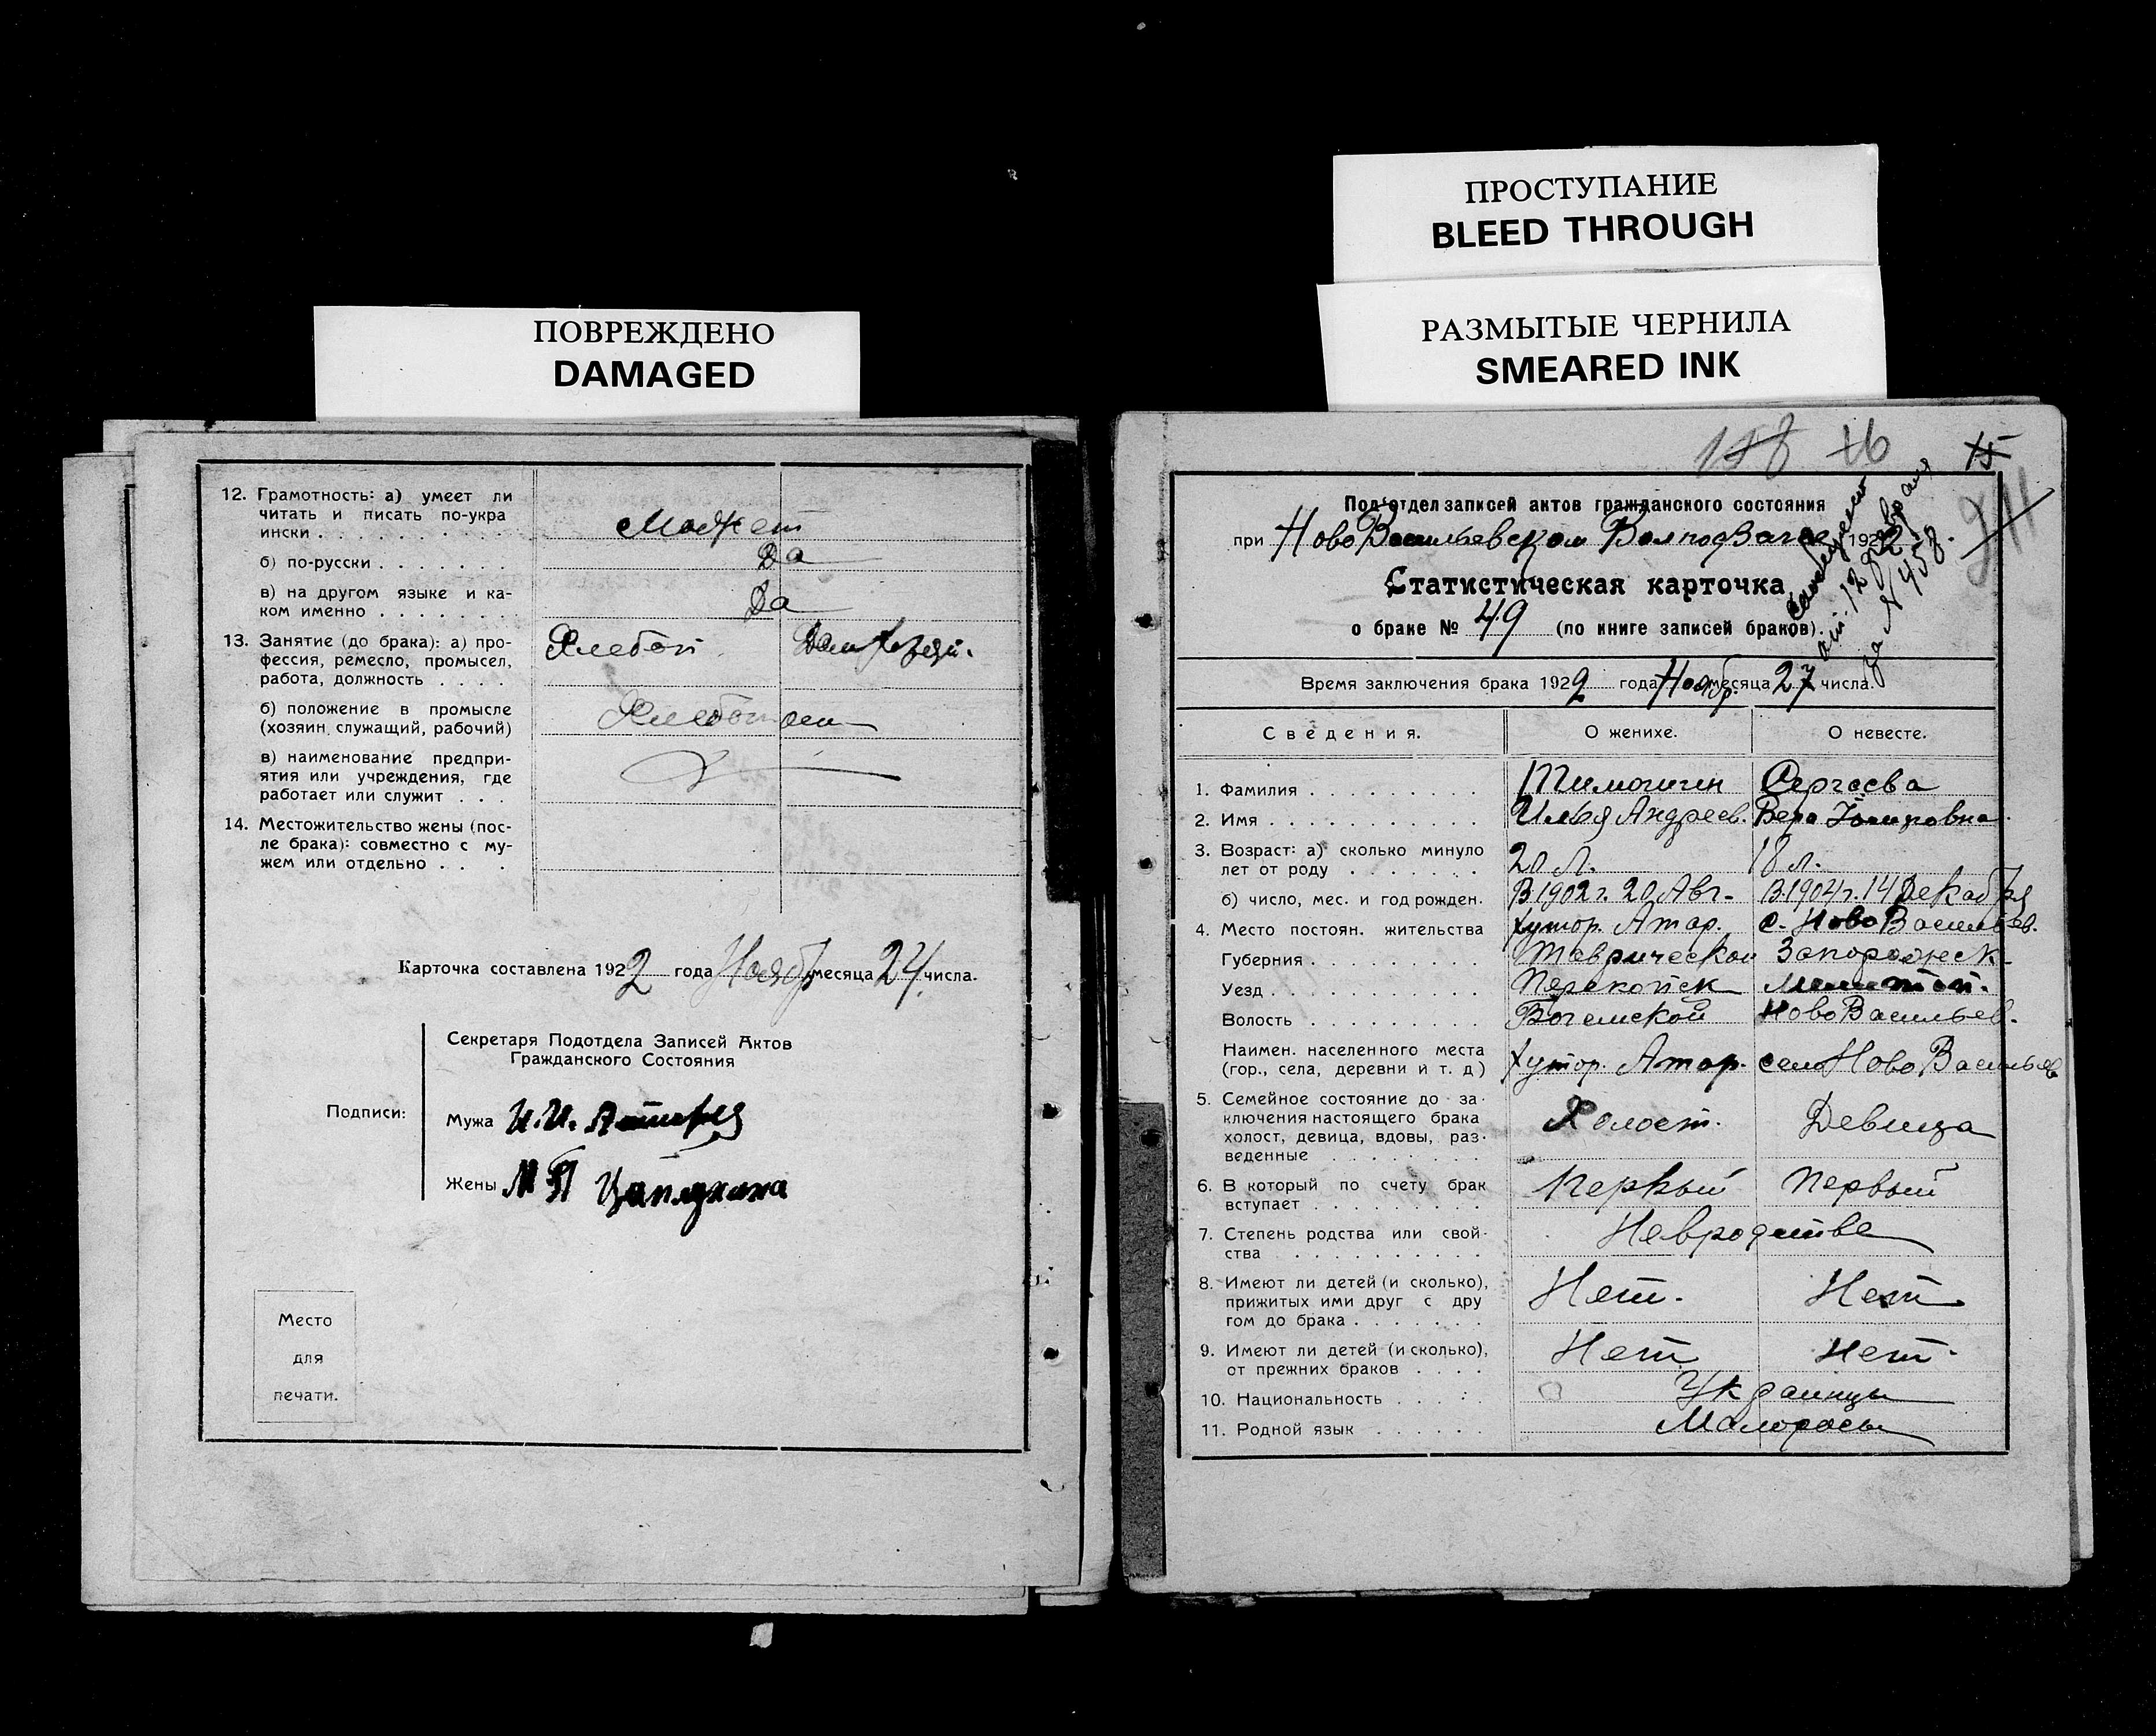 ПОВРЕЖДЕНО
DAMAGED
12. Грамотность: а) умеет ли
читать и писать по-укра
ински . . . . . . . . . . Может
б) по-русски . . . . . . . Да
в) на другом языке и ка-
ком именно . . . . . . . Да
13. Занятие (до брака): а) про-
фессия, ремесло, промысел,
работа, должность . . . .
б) положение в промысле
(хозяин, служащий, рабочий)
в) наименование предпри-
ятия или учреждения, где
работает или служит . . .
14. Местожительство жены (пос-
ле брака): совместно с му-
жем или отдельно . . .
Карточка составлена 1922 года Ноябр месяца 24 числа.
Секретаря Подотдела Записей Актов
Гражданского Состояния
Подписи:
Мужа И. И.
Жены
Место
для
печати.
ПРОСТУПАНИЕ
BLEED THROUGH
РАЗМЫТЫЕ ЧЕРНИЛА
SMEARED INK
158 16 15
Под'отдел записей актов гражданского состояния
при Ново Васильевском 192
Статистическая карточка
о браке № 49 (по книге записей браков).
от 12 февраля
за № 458.
Время заключения брака 1922 года Ноябр. месяца 27 числа.
Сведения. О женихе. О невесте.
1. Фамилия . . . . . . . . . Тимошин Сергеева
2. Имя . . . . . . . . . . . Илья Андреев. Вера
3. Возраст: а) сколько минуло
лет от роду . . . . . . . 20 л. 18 л.
б) число, мес. и год рожден. В 1902 г. 20 Авг. В 1904 г. 14 Декабря
4. Место постоян. жительства хутор. Атар. с. Ново Васильев.
Губерния . . . . . . . . . Таврической Запорожеск
Уезд . . . . . . . . . . . Перекопск Мелитоп.
Волость . . . . . . . . . Богемской Ново Васильев.
Наимен. населенного места
(гор., села, деревни и т. д) хутор. Атар. село Ново Васильев
5. Семейное состояние до за-
ключения настоящего брака
холост, девица, вдовы, раз-
веденные . . . . . . . . Холост. Девица
6. В который по счету брак
вступает . . . . . . . . . Первый Первый
7. Степень родства или свой-
ства . . . . . . . . . . Невродстве
8. Имеют ли детей (и сколько),
прижитых ими друг с дру
гом до брака . . . . . . . Нет. Нет
9. Имеют ли детей (и сколько),
от прежних браков . . . . Нет Нет.
10. Национальность . . . . . Украинцы
11. Родной язык . . . . . . Малоросы